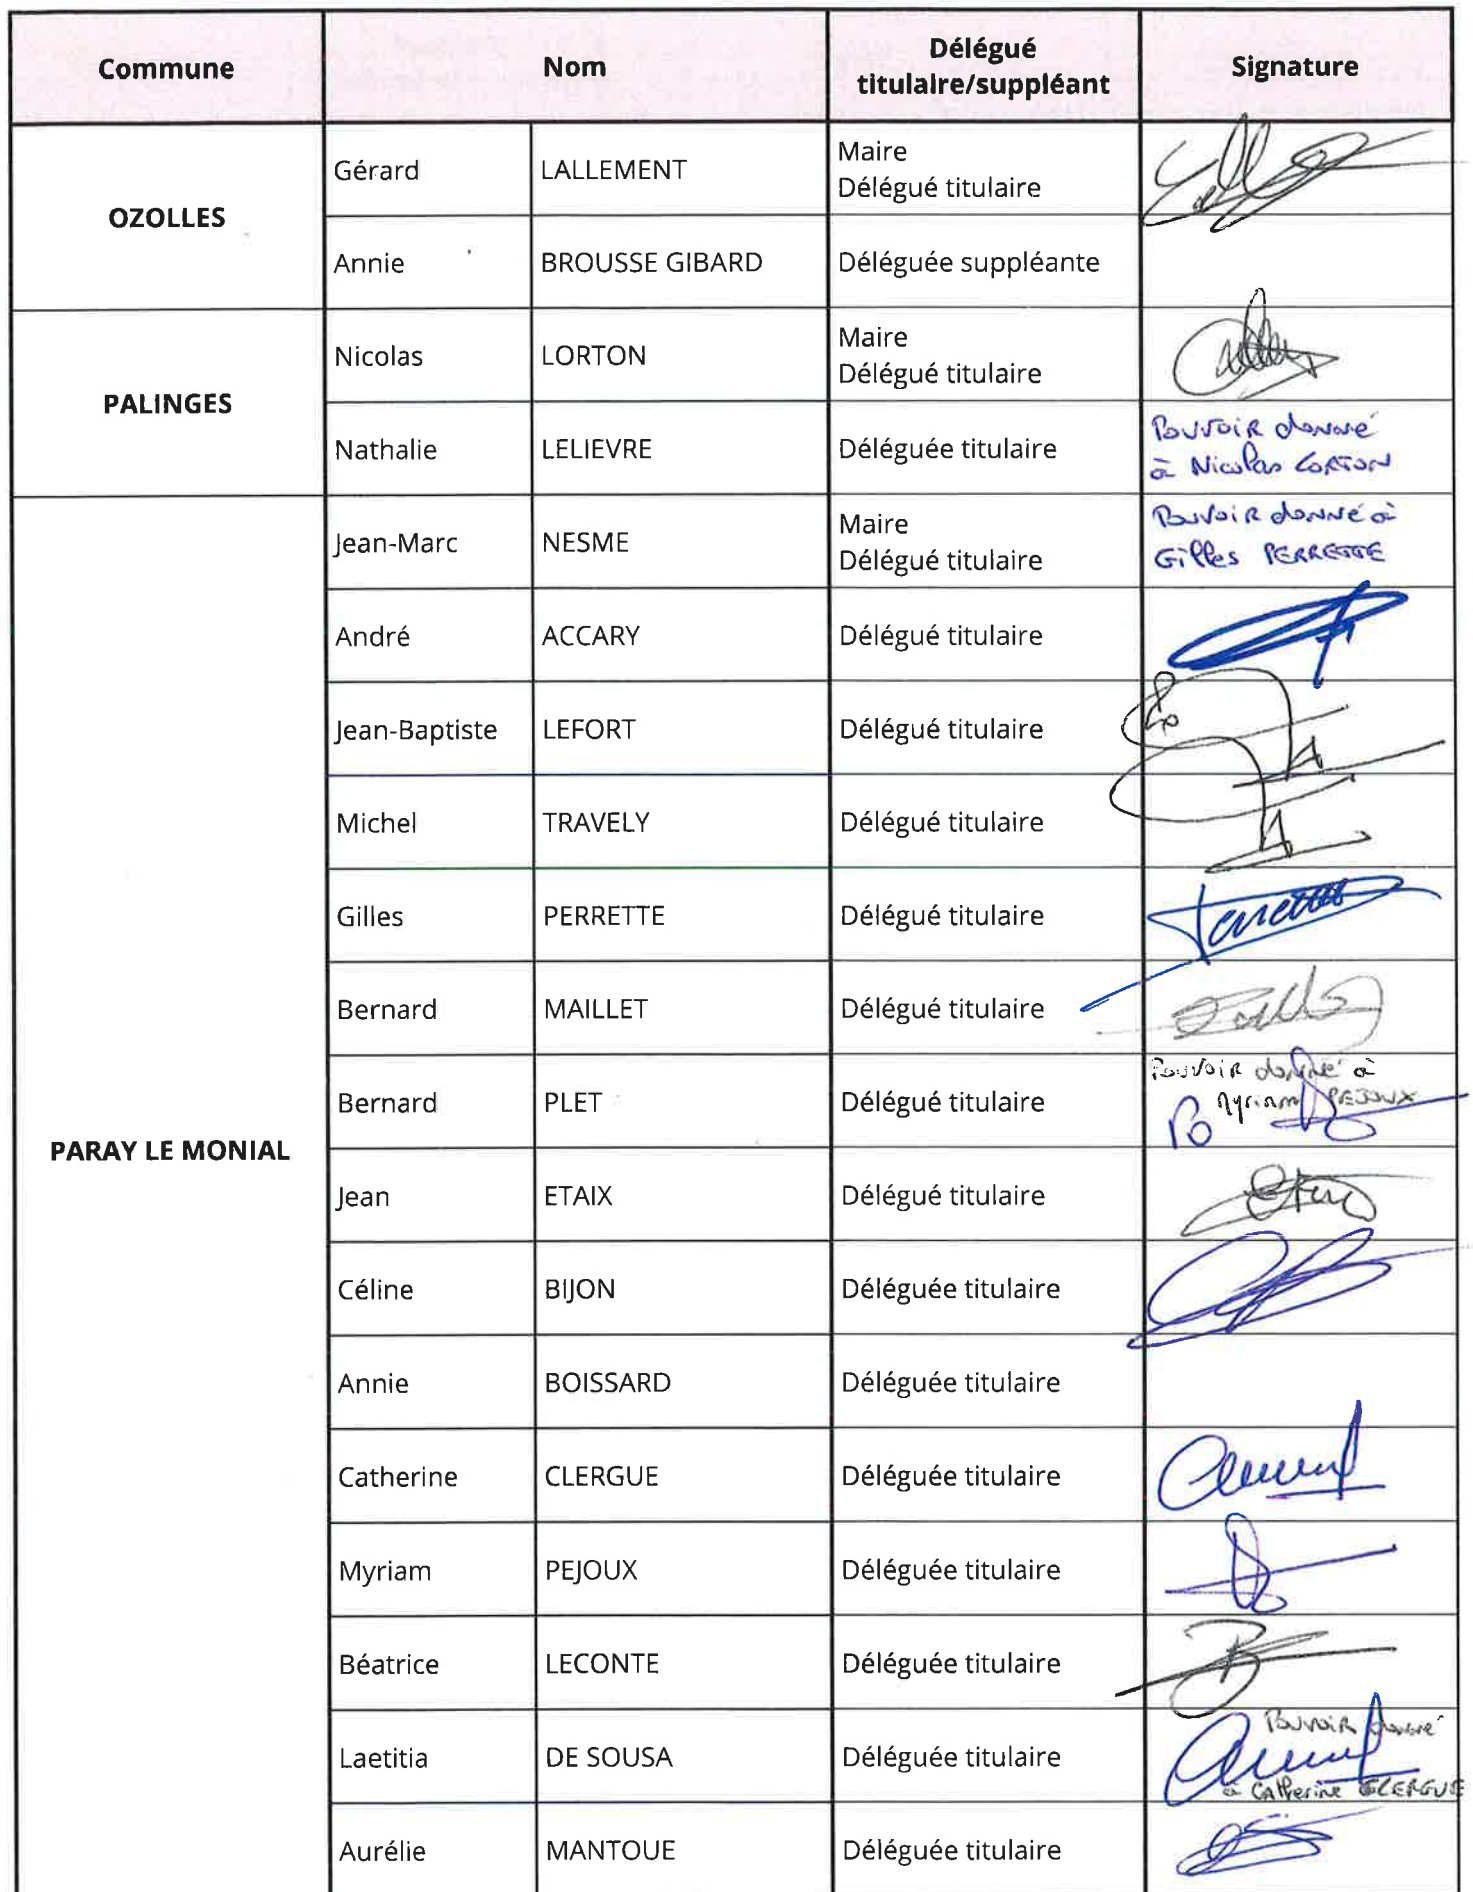 Commune Nom Délégué titulaire/suppléant Signature
OZOLLES
Gérard LALLEMENT Maire
Délégué titulaire
Annie BROUSSE GIBARD Déléguée suppléante
PALINGES
Nicolas LORTON Maire
Délégué titulaire
Nathalie LELIEVRE Déléguée titulaire Pouvoir donné
à Nicolas LORTON
PARAY LE MONIAL
Jean-Marc NESME Maire
Délégué titulaire Pouvoir donné à
Gilles PERRETTE
André ACCARY Délégué titulaire
Jean-Baptiste LEFORT Délégué titulaire
Michel TRAVELY Délégué titulaire
Gilles PERRETTE Délégué titulaire
Bernard MAILLET Délégué titulaire
Bernard PLET Délégué titulaire Pouvoir donné à
Myriam PEJOUX
Po
Jean ETAIX Délégué titulaire
Céline BIJON Déléguée titulaire
Annie BOISSARD Déléguée titulaire
Catherine CLERGUE Déléguée titulaire
Myriam PEJOUX Déléguée titulaire
Béatrice LECONTE Déléguée titulaire
Laetitia DE SOUSA Déléguée titulaire Pouvoir donné
à Catherine CLERGUE
Aurélie MANTOUE Déléguée titulaire